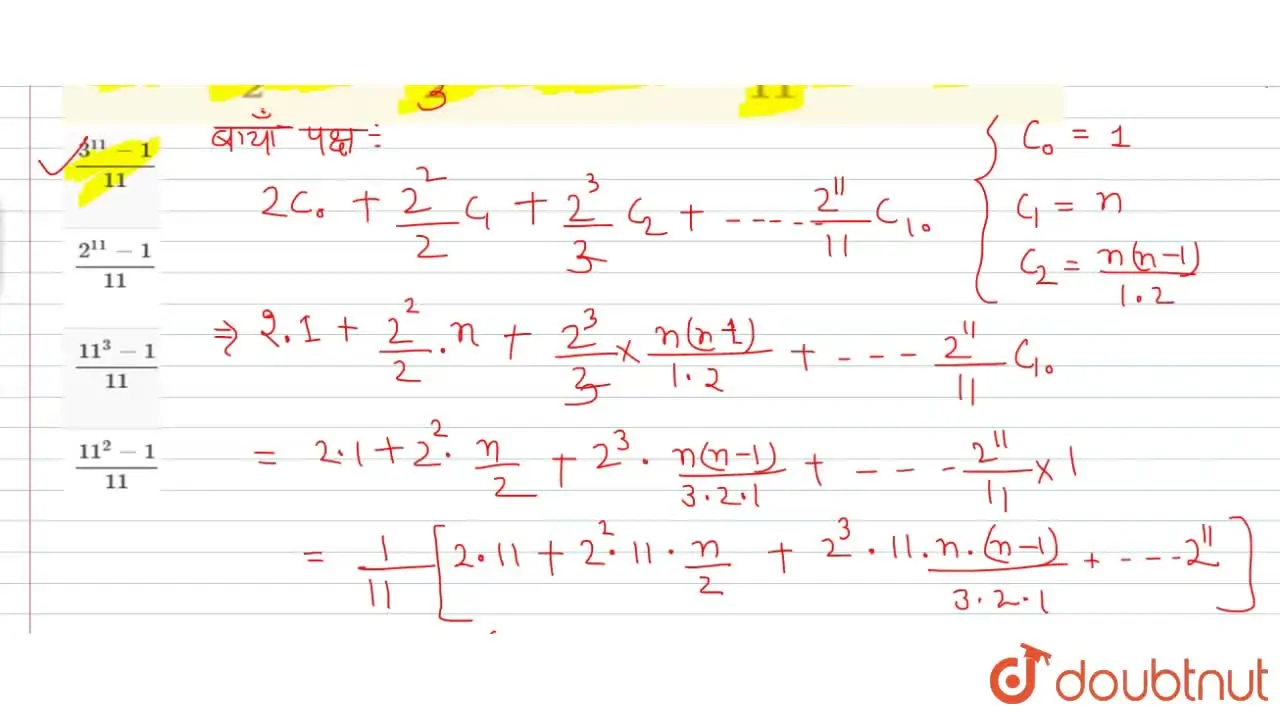 2 3 11
3¹¹ − 1 / 11
2¹¹ − 1 / 11
11³ − 1 / 11
11² − 1 / 11
बायाँ पक्ष ÷
2C₀ + 2²/2 C₁ + 2³/3 C₂ + ----- 2¹¹/11 C₁₀
{ C₀ = 1
C₁ = n
C₂ = n(n−1)/1·2
⇒ 2·1 + 2²/2 · n + 2³/3 × n(n−1)/1·2 + --- 2¹¹/11 C₁₀
= 2·1 + 2² · n/2 + 2³ · n(n−1)/3·2·1 + ---- 2¹¹/11 × 1
= 1/11 [2·11 + 2²·11· n/2 + 2³·11· n·(n−1)/3·2·1 + ---- 2¹¹]
doubtnut